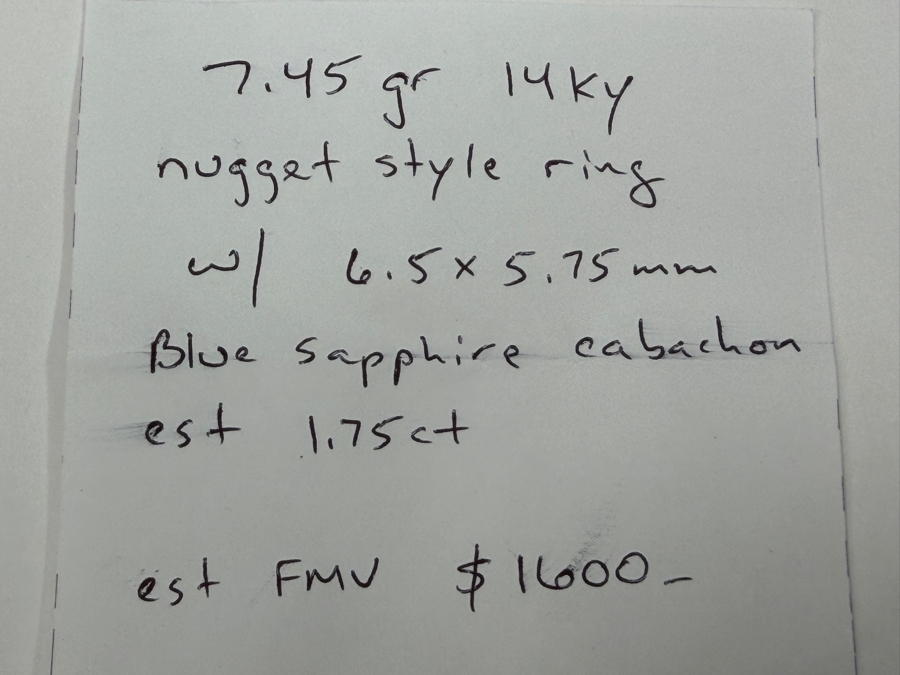 7.45 gr 14ky
nugget style ring
w/ 6.5 x 5.75 mm
Blue sapphire cabachon
est 1.75ct
est FMV $1600-